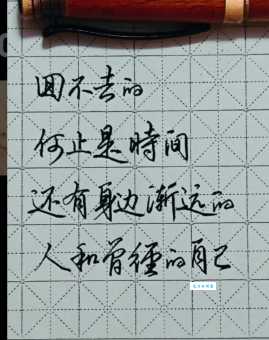 回不去的
何止是時间
还有身边渐远的
人和曾經的自己